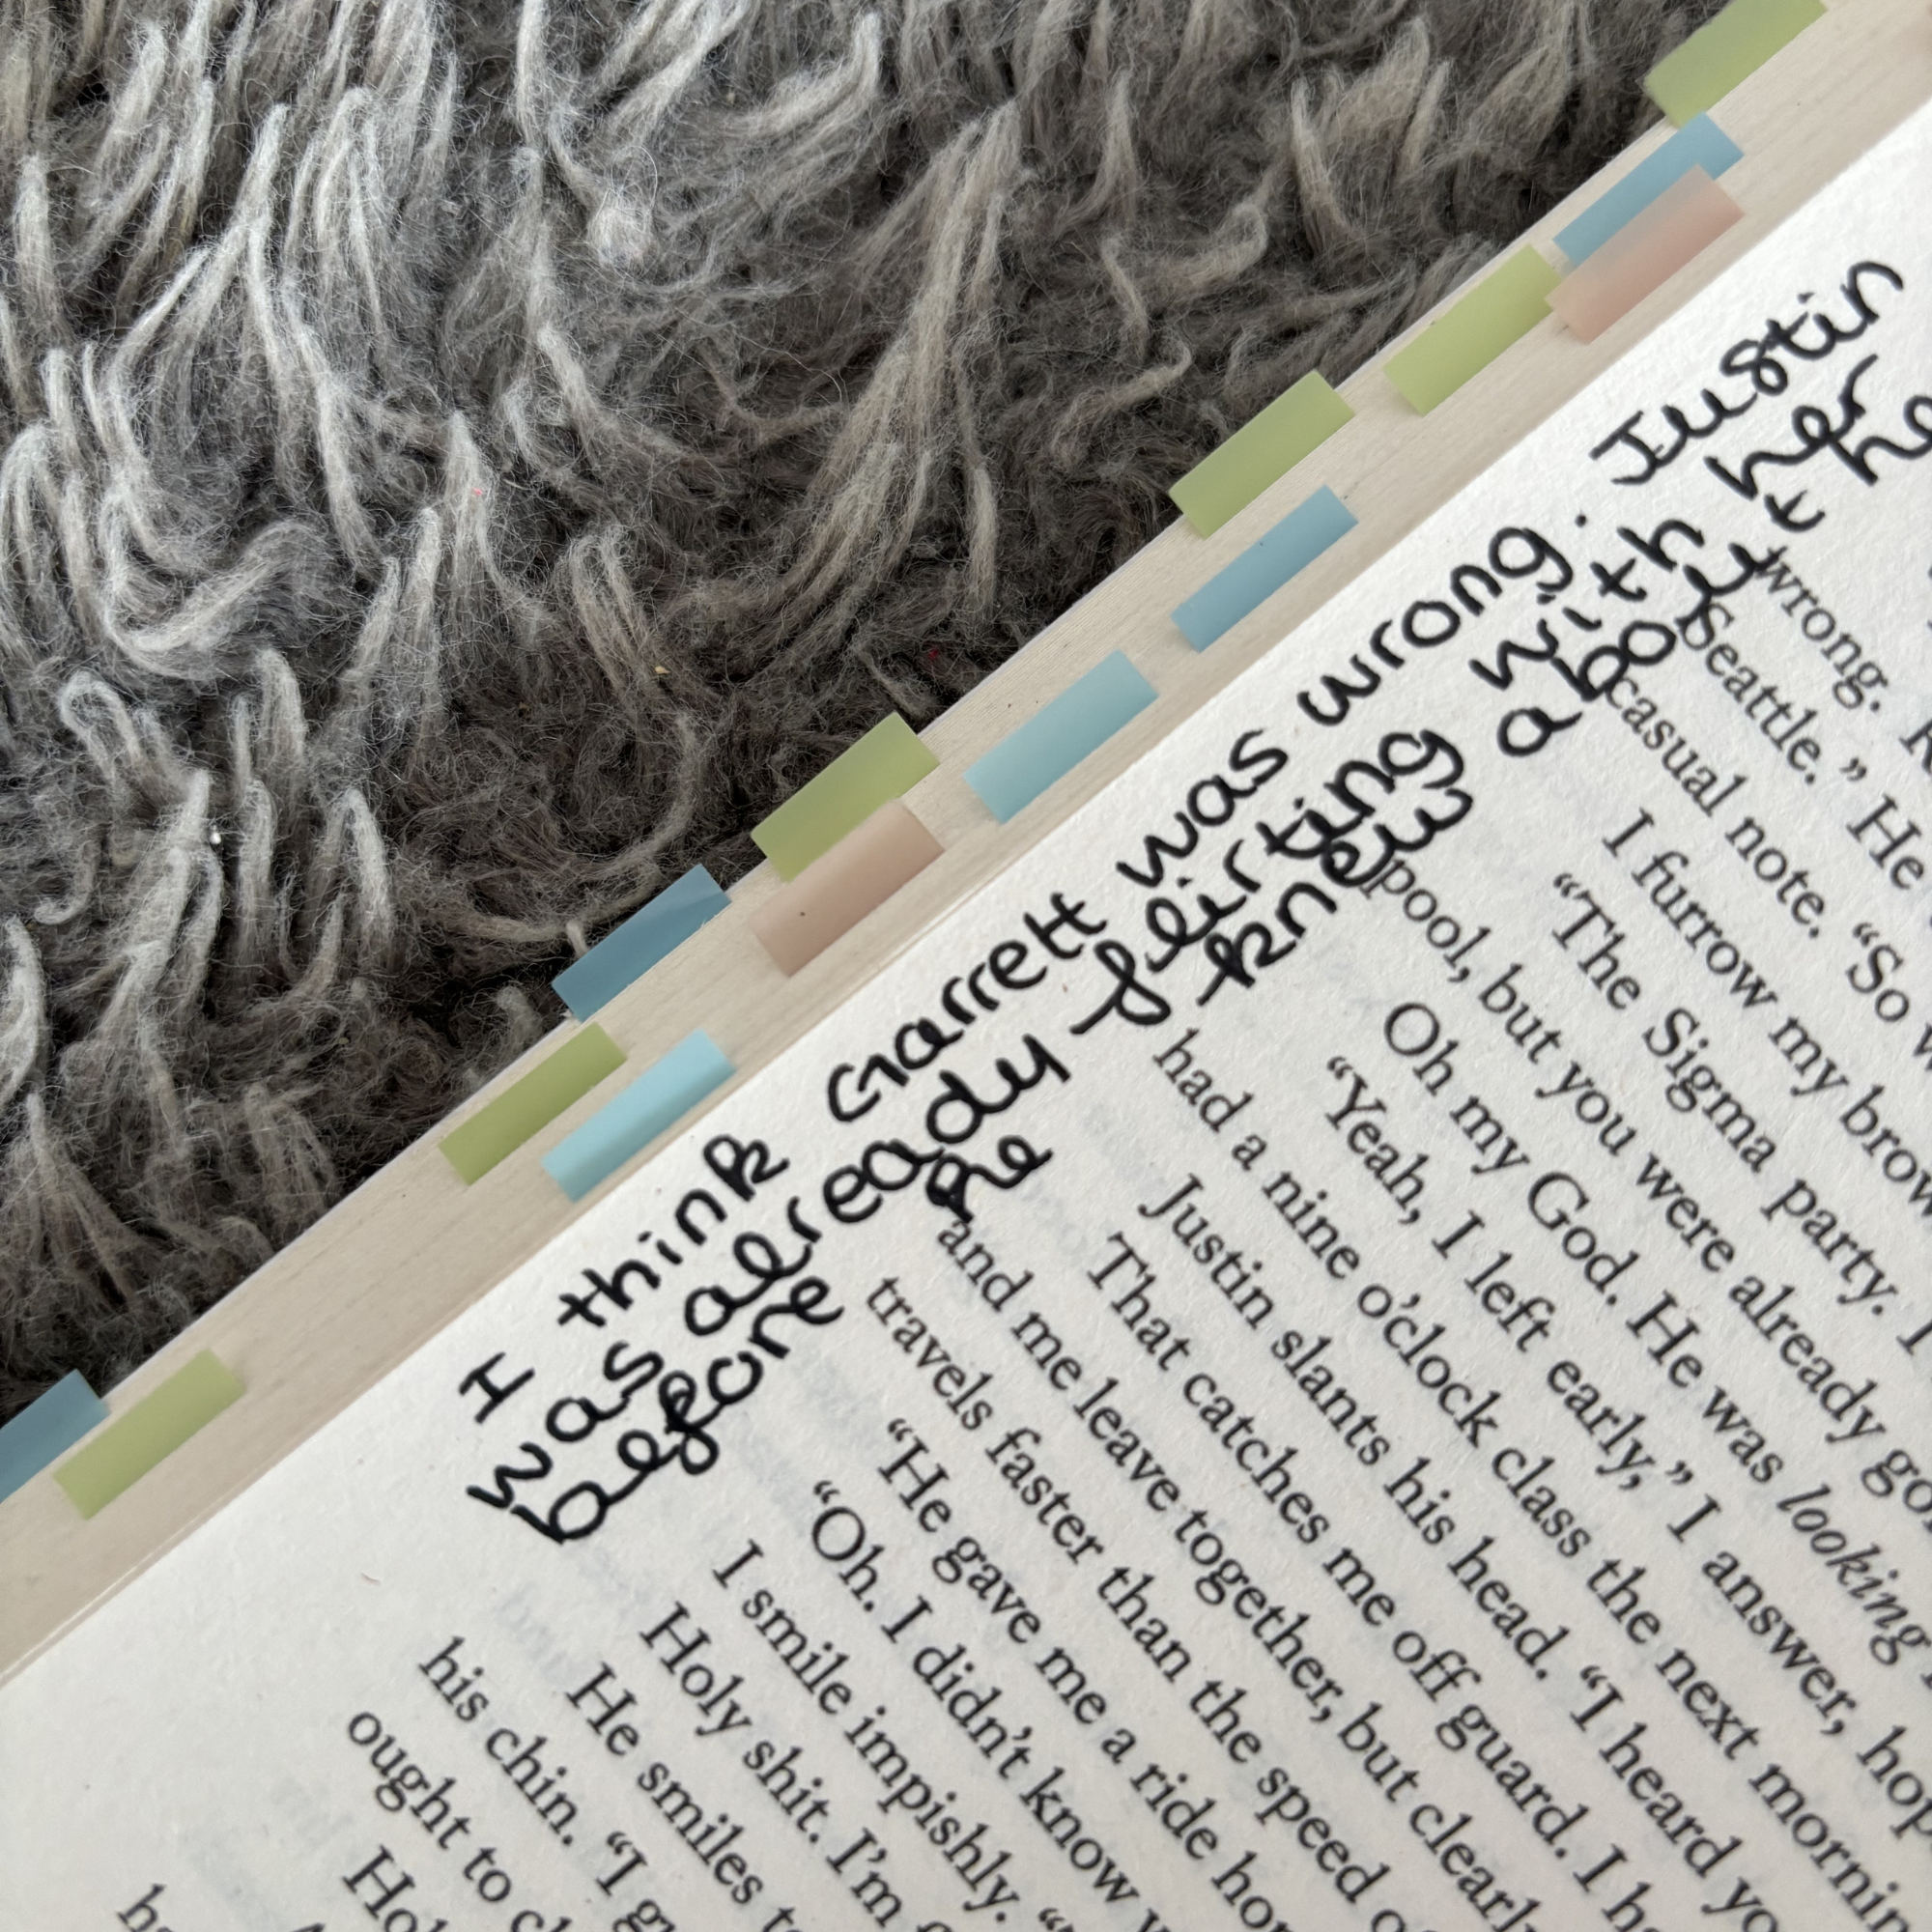 I think Garrett was wrong. Justin
was already flirting with her
before he knew
wrong.
Seattle.” He
casual note. “So
I furrow my brow
“The Sigma party. I
pool, but you were already go
Oh my God. He was looking
“Yeah, I left early,” I answer, hop
had a nine o’clock class the next mornin
Justin slants his head. “I heard yo
That catches me off guard. I ha
and me leave together, but clearl
travels faster than the speed o
“He gave me a ride ho
“Oh. I didn’t know
I smile impishly. “
Holy shit. I’m
He smiles
his chin. “I g
ought to
Hol
ha